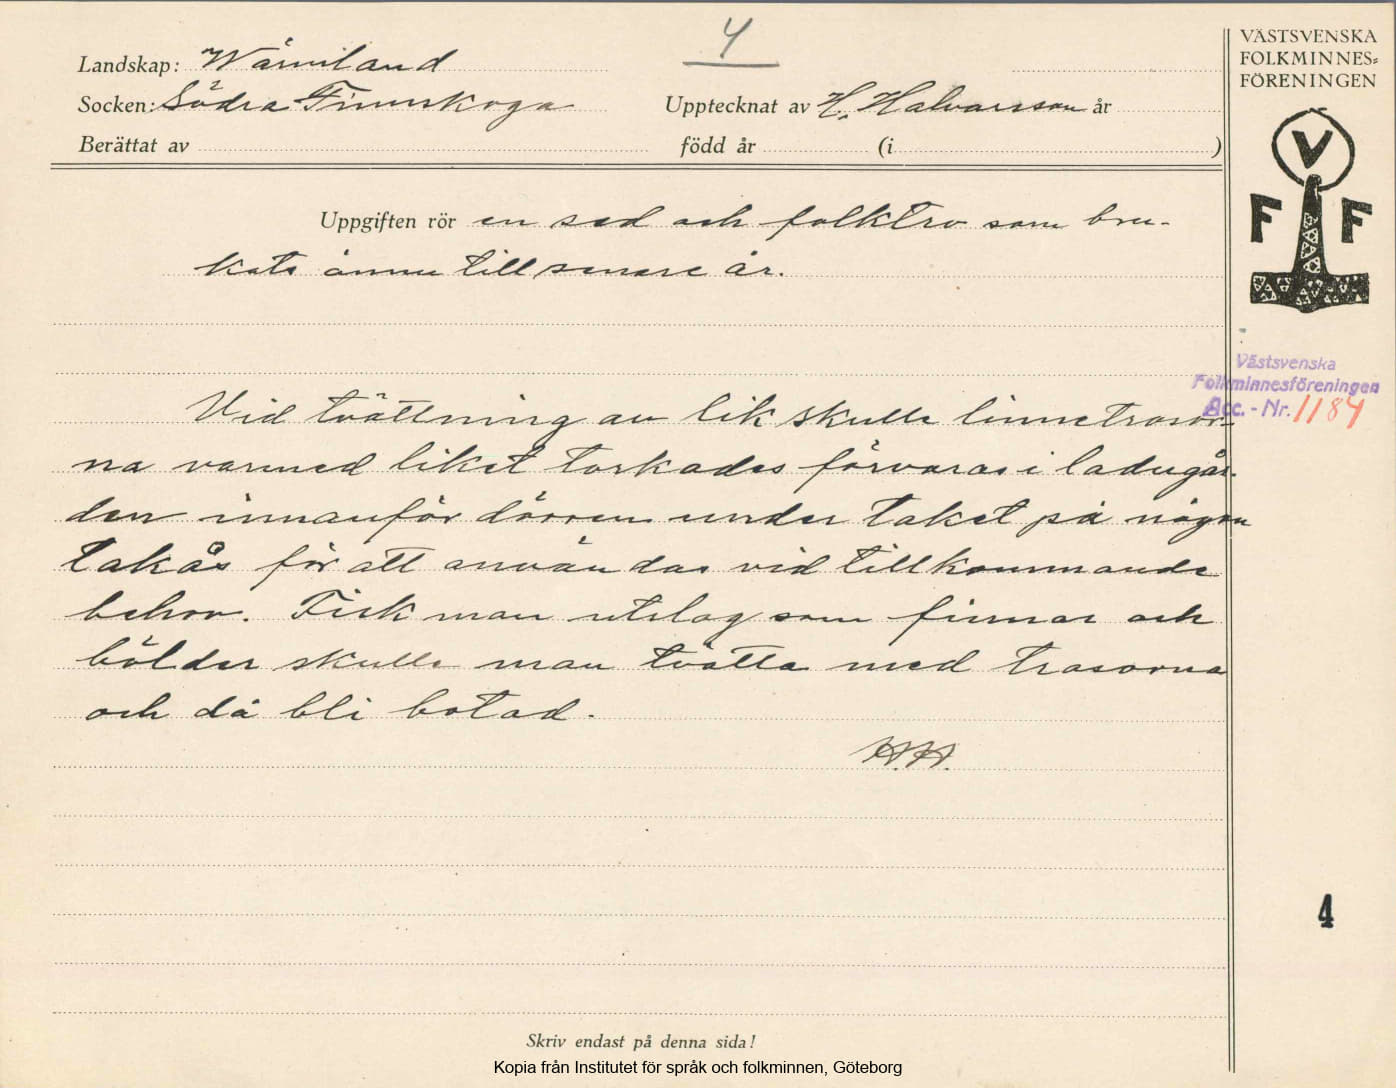 4
Landskap: Wärmland
Socken: Södra Finnskoga
Upptecknat av H. Halvarsson år
Berättat av
född år (i )
Uppgiften rör en sed och folktro som bru-
kats ännu till senare år.
Vid tvättning av lik skulle linnetrasor-
na varmed liket torkades förvaras i ladugår-
den innanför dörren under taket på någon
takås för att användas vid tillkommande
behov. Fick man utslag som finnar och
bölder skulle man tvätta med trasorna
och då bli botad.
H.H.
Skriv endast på denna sida!
Kopia från Institutet för språk och folkminnen, Göteborg
VÄSTSVENSKA
FOLKMINNES=
FÖRENINGEN
V
F F
Västsvenska
Folkminnesföreningen
Acc. - Nr. 1184
4